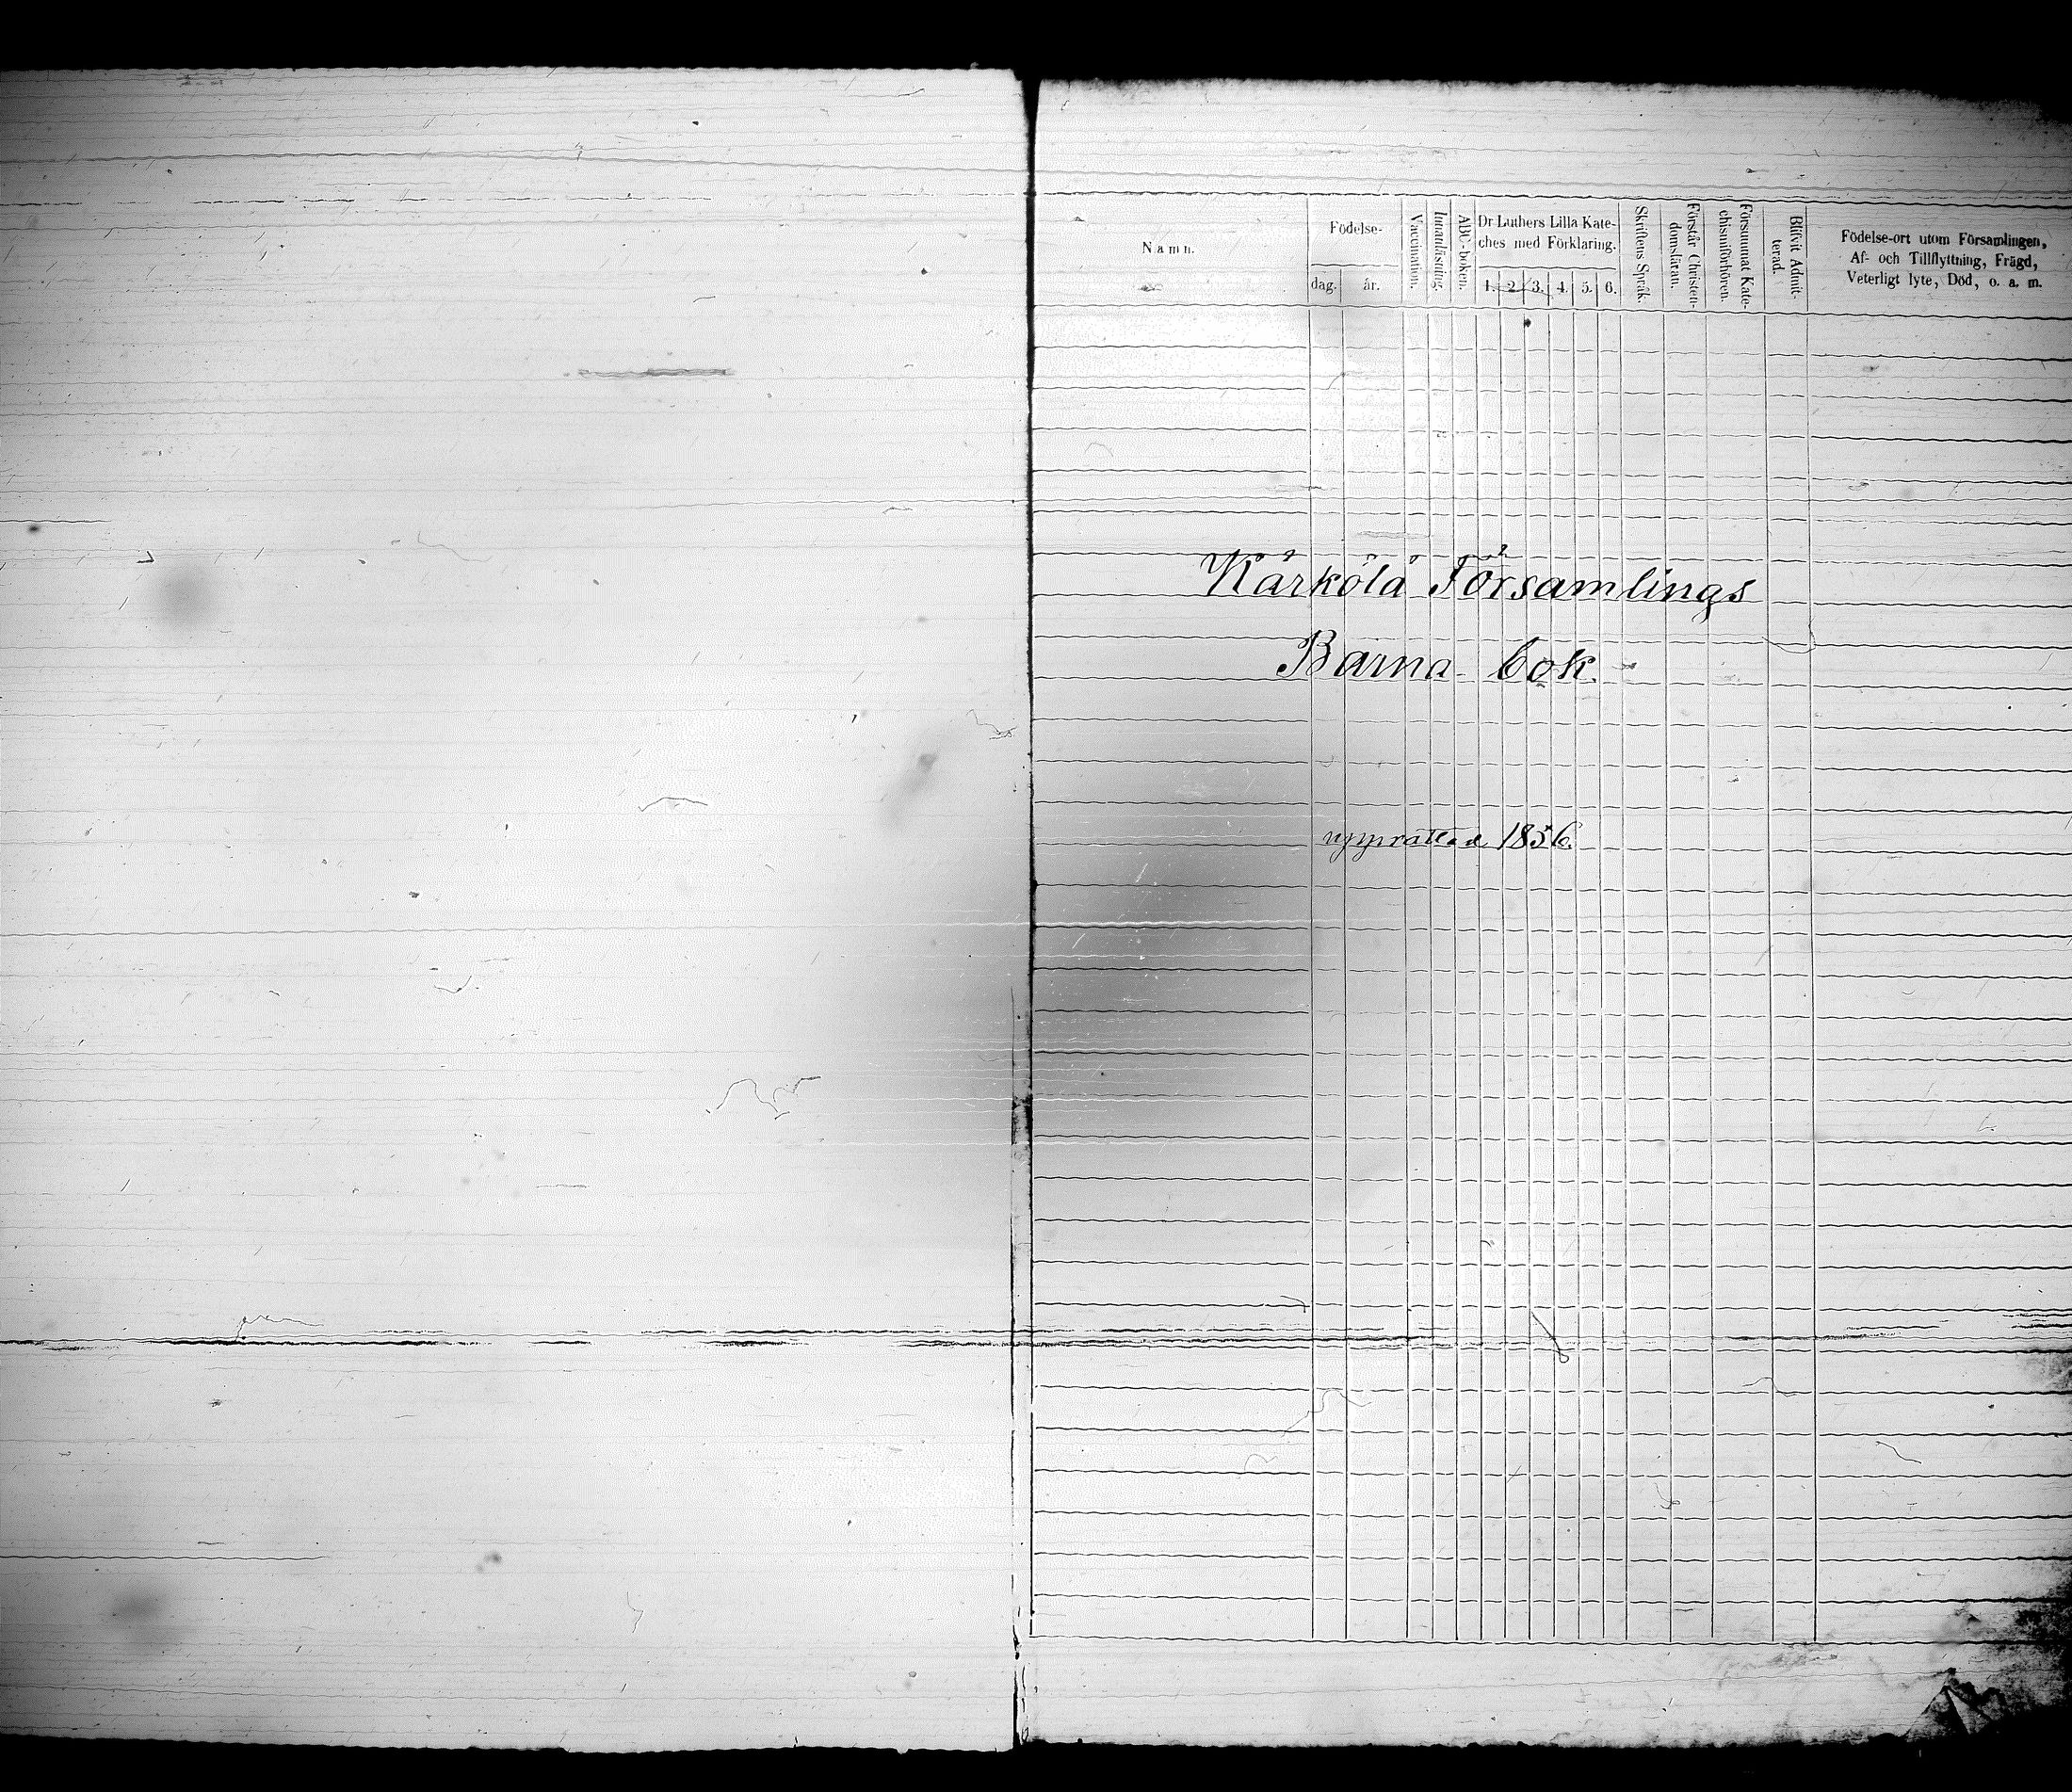 Namn.
Födelse-
dag. år.
Vaccination.
Innanläsning.
ABC-boken.
Dr Luthers Lilla Kate-
ches med Förklaring.
1. 2. 3. 4. 5. 6.
Skriftens Språk.
Förstår Christen-
domsläran.
Försummat Kate-
chismiförhören.
Blifvit Admit-
terad.
Födelse-ort utom Församlingen,
Af- och Tillflyttning, Frägd,
Veterligt lyte, Död, o. a. m.
Kärkölä Församlings
Barna-bok.
upprättad 1856.